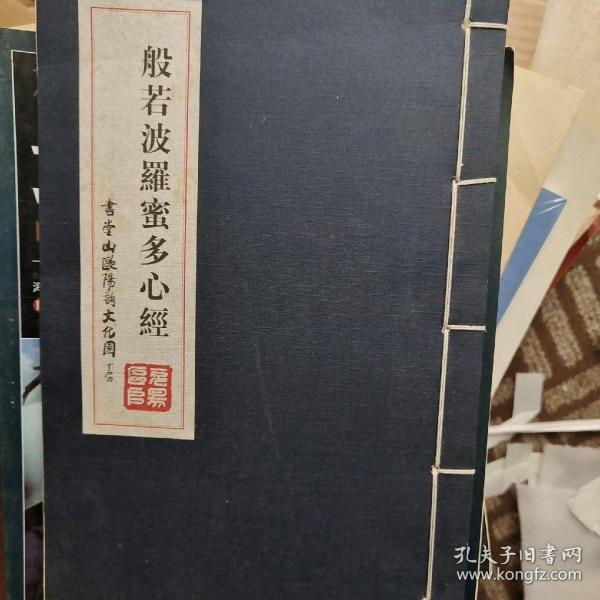 般若波羅蜜多心經
書堂山歐陽詢文化園
孔夫子旧书网
www.kongfz.com